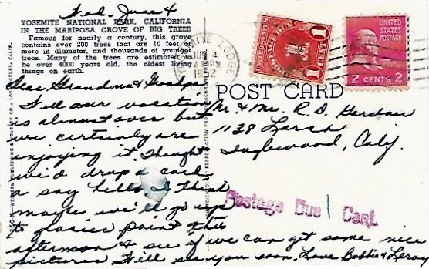 Wed, June 4
YOSEMITE NATIONAL PARK, CALIFORNIA
IN THE MARIPOSA GROVE OF BIG TREES
Famous for nearly a century, this grove
contains over 200 trees that are 10 feet or
more in diameter, and thousands of younger
trees. Many of the trees are estimated to
be over 4000 years old, the oldest living
things on earth.
JUN 4
1952
UNITED STATES POSTAGE
2 CENTS 2
POST CARD
Dear Grandma & Grandpa
Well our vacation
is almost over but
we certainly are
enjoying it. Thought
we'd drop a card
& say hello. I think
maybe we'll go up
to glacier point this
afternoon & see if we can get some nice
pictures. Will see you soon, Love Bobbie & Leroy
Mr & Mrs. R. D.
1128 Larch
Inglewood, Calif.
Postage Due 1 Cent.